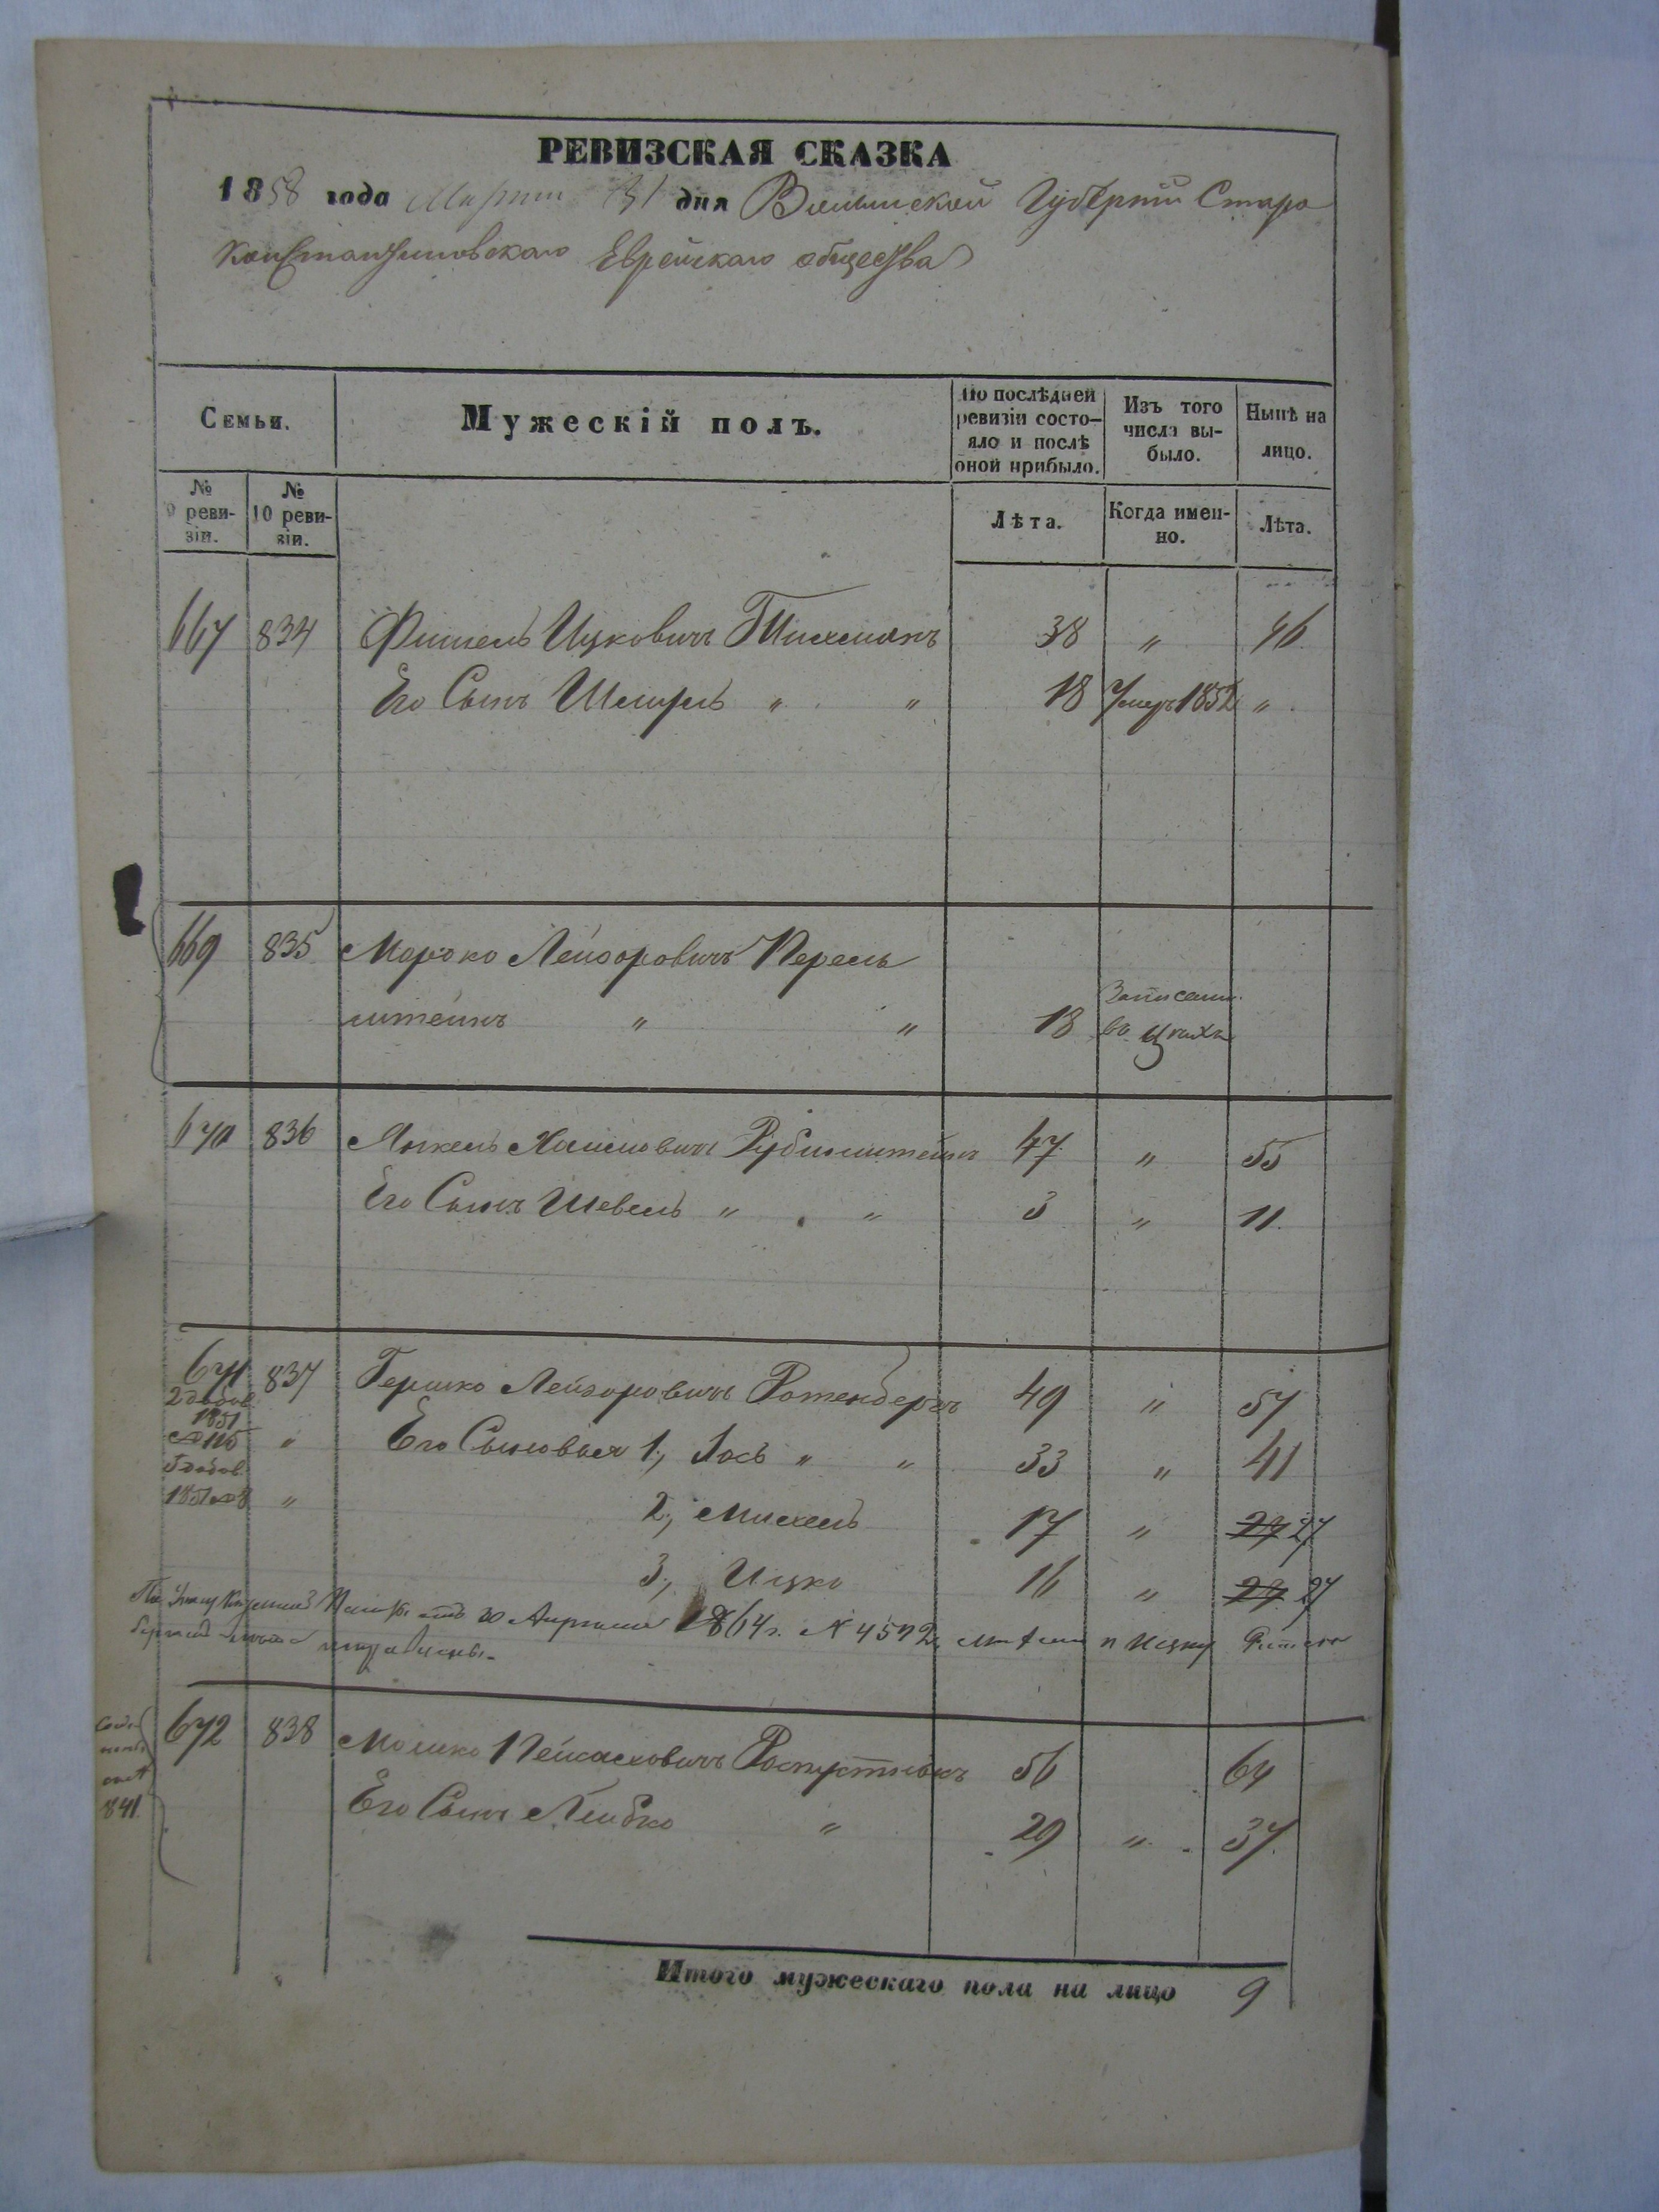 РЕВИЗСКАЯ СКАЗКА
1858 года Марта 31 дня Волынской Губерніи Старо
константиновскаго Еврейскаго общества
Семьи.
Мужескій полъ.
По послѣдней ревизіи состо-
яло и послѣ
оной прибыло.
Изъ того
числа вы-
было.
Нынѣ на
лицо.
№
9 реви-
зіи.
№
10 реви-
зіи.
Лѣта.
Когда имен-
но.
Лѣта.
667 834 Фишель Ицковичъ 38 " 46
Его Сынъ " " 18 Умеръ 1852 "
669 835 Мордко Лейзоровичъ Перель
штейнъ " " 18 Записанъ
въ цехъ
670 836 Янкель Хаимовичъ Рубинштейнъ 47 " 55
Его Сынъ Шевель " " 3 " 11
671 837 Гершко Лейзоровичъ Ротенберъ 49 " 57
2 добав.
1851
№ 115 " Его Сыновья 1, Іось " " 33 " 41
5 добав.
1851 № 8 " 2, Михель 17 " 29 27
3, Ицко 16 " 29 27
По Указу Казенной Палаты отъ 20 Апреля 1864 г. № 4572 и Ицку
исправлены.
672 838 Мошко Пейсаховичъ 56 64
Его Сынъ Лейбко " 29 " 37
841
Итого мужескаго пола на лицо 9